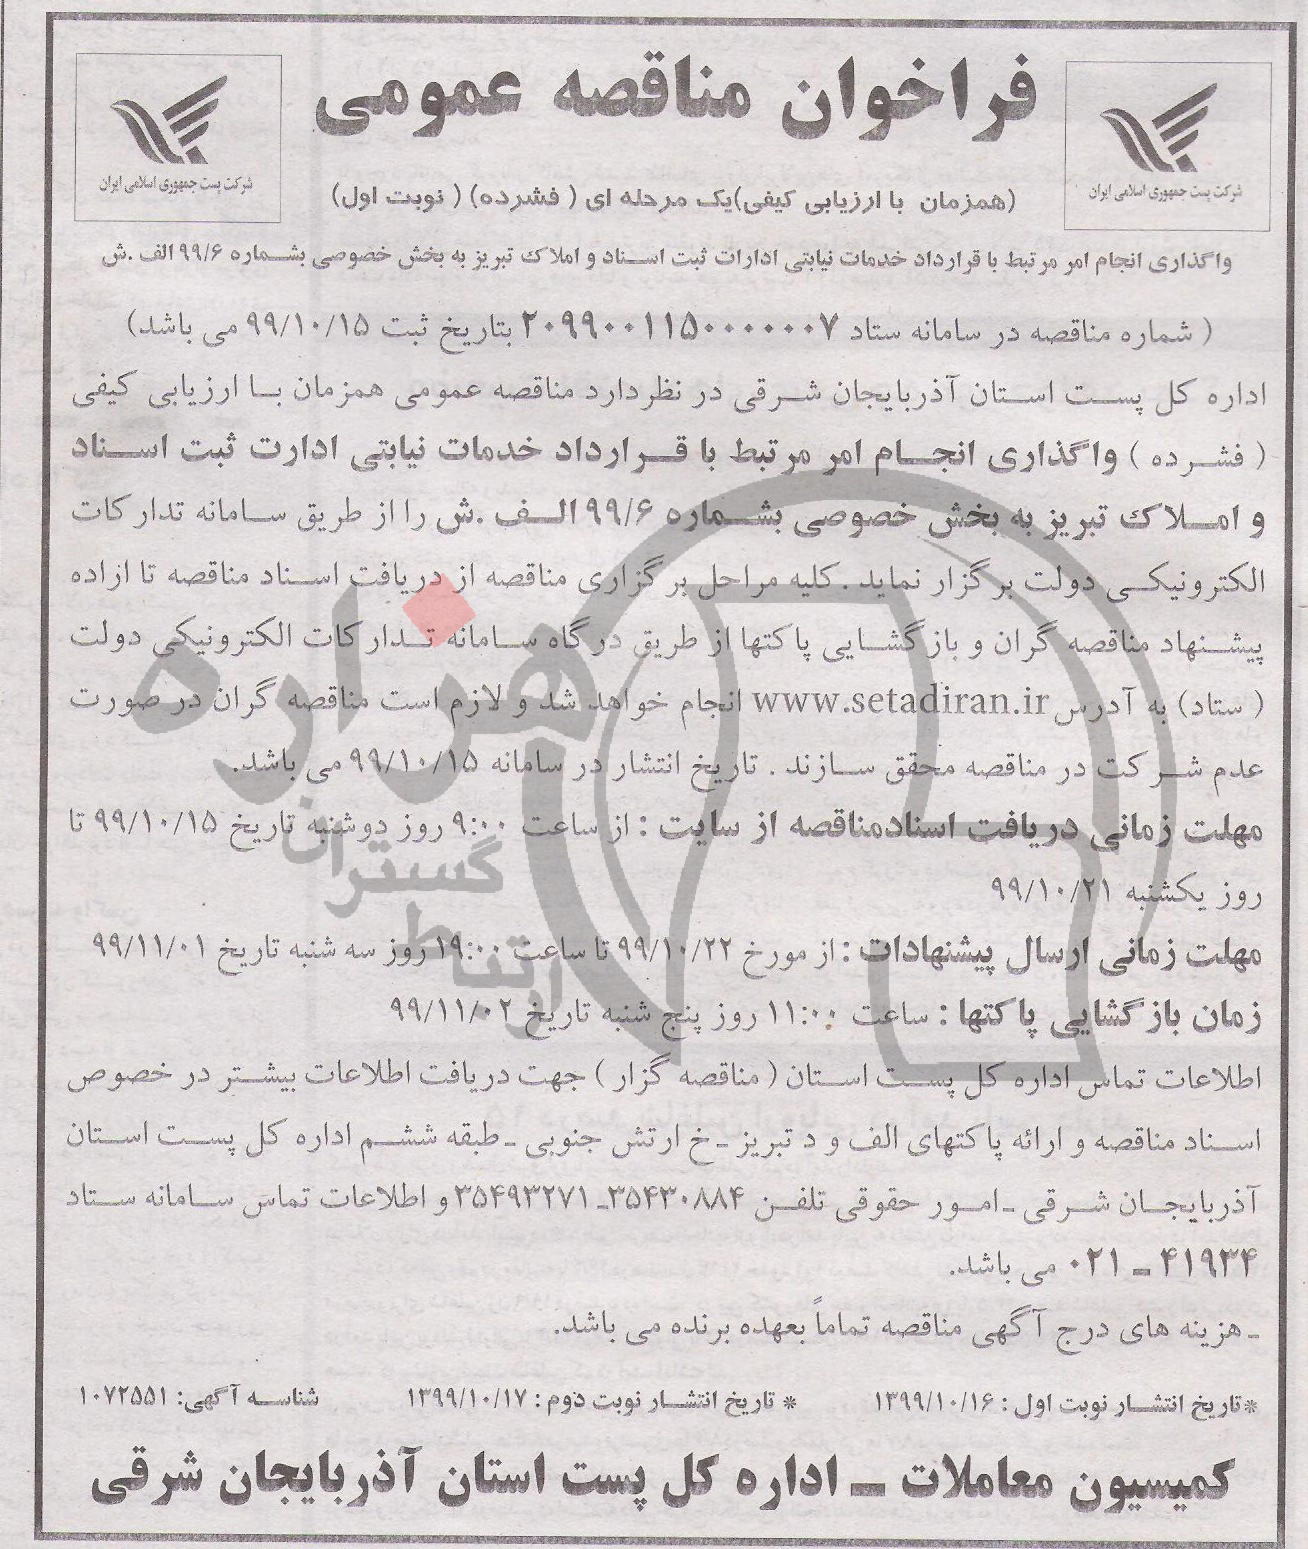 فراخوان مناقصه عمومی
شرکت پست جمهوری اسلامی ایران
شرکت پست جمهوری اسلامی ایران
(همزمان با ارزیابی کیفی)یک مرحله ای ( فشرده) ( نوبت اول)
واگذاری انجام امر مرتبط با قرارداد خدمات نیابتی ادارات ثبت اسناد و املاک تبریز به بخش خصوصی بشماره ۹۹/۶الف .ش
( شماره مناقصه در سامانه ستاد ۲۰۹۹۰۰۱۱۵۰۰۰۰۰۰۷ بتاریخ ثبت ۹۹/۱۰/۱۵ می باشد)
اداره کل پست استان آذربایجان شرقی در نظردارد مناقصه عمومی همزمان با ارزیابی کیفی
( فشرده ) واگذاری انجام امر مرتبط با قرارداد خدمات نیابتی ادارت ثبت اسناد
و املاک تبریز به بخش خصوصی بشماره ۹۹/۶الف .ش را از طریق سامانه تدارکات
الکترونیکی دولت برگزار نماید .کلیه مراحل برگزاری مناقصه از دریافت اسناد مناقصه تا ازاده
پیشنهاد مناقصه گران و بازگشایی پاکتها از طریق درگاه سامانه تدارکات الکترونیکی دولت
( ستاد) به آدرس www.setadiran.ir انجام خواهد شد و لازم است مناقصه گران در صورت
عدم شرکت در مناقصه محقق سازند . تاریخ انتشار در سامانه ۹۹/۱۰/۱۵ می باشد.
مهلت زمانی دریافت اسنادمناقصه از سایت : از ساعت ۹:۰۰ روز دوشنبه تاریخ ۹۹/۱۰/۱۵ تا
روز یکشنبه ۹۹/۱۰/۲۱
مهلت زمانی ارسال پیشنهادات : از مورخ ۹۹/۱۰/۲۲ تا ساعت ۱۹:۰۰ روز سه شنبه تاریخ ۹۹/۱۱/۰۱
زمان بازگشایی پاکتها : ساعت ۱۱:۰۰ روز پنج شنبه تاریخ ۹۹/۱۱/۰۲
اطلاعات تماس اداره کل پست استان ( مناقصه گزار ) جهت دریافت اطلاعات بیشتر در خصوص
اسناد مناقصه و ارائه پاکتهای الف و د تبریز ـ خ ارتش جنوبی ـ طبقه ششم اداره کل پست استان
آذربایجان شرقی ـ امور حقوقی تلفن ۳۵۴۳۰۸۸۴ـ ۳۵۴۹۳۲۷۱ و اطلاعات تماس سامانه ستاد
۴۱۹۳۴ ـ ۰۲۱ می باشد.
ـ هزینه های درج آگهی مناقصه تماماً بعهده برنده می باشد.
*تاریخ انتشار نوبت اول : ۱۳۹۹/۱۰/۱۶ * تاریخ انتشار نوبت دوم : ۱۳۹۹/۱۰/۱۷ شناسه آگهی: ۱۰۷۲۵۵۱
کمیسیون معاملات ـ اداره کل پست استان آذربایجان شرقی
هزاره
گستران
ارتباط